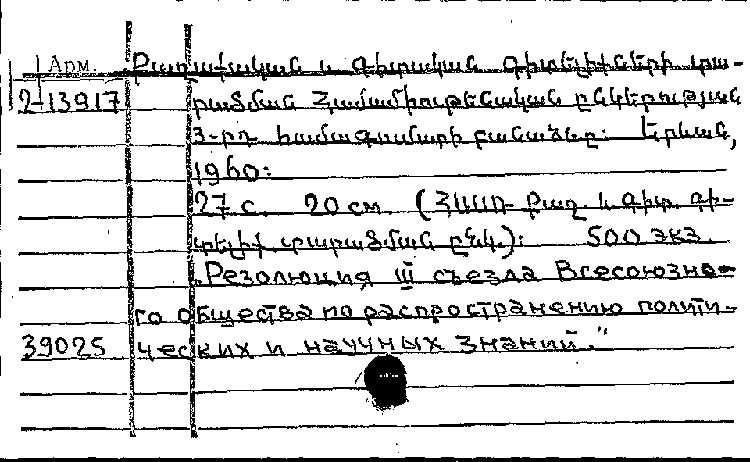 Арм. Քաղաքական և գիտական գիտելիքների տա-
2-13917 րածման Համամիութենական ընկերության
3-րդ համագումարի բանաձևը: Երևան,
1960:
27 с. 20 см. (ՀՍՍՌ Քաղ. և գիտ. գի-
տելիք. տարածման ընկ.): 500 экз.
"Резолюция III съезда Всесоюзно-
го общества по распространению полити-
39025 ческих и научных знаний."